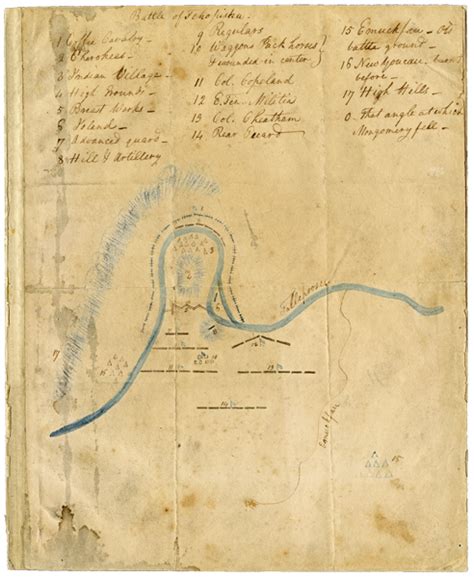 Battle of Tohopiska
1 Coffee Cavalry
2 Cherokees
3 Indian Village
4 High Grounds
5 Breast Works
6 Island
7 Advanced guard
8 Hill & Artillery
9 Regulars
10 Waggons Pack horses
& wounded in center
11 Col. Copeland
12 E. Ten. Militia
13 Col. Cheatham
14 Rear Guard
15 Emuckfau Old
battle ground
16 Newyoucau burnt
before
17 High Hills
0 That angle at which
Montgomery fell
Tallapoosa
Emuckfau
17
15